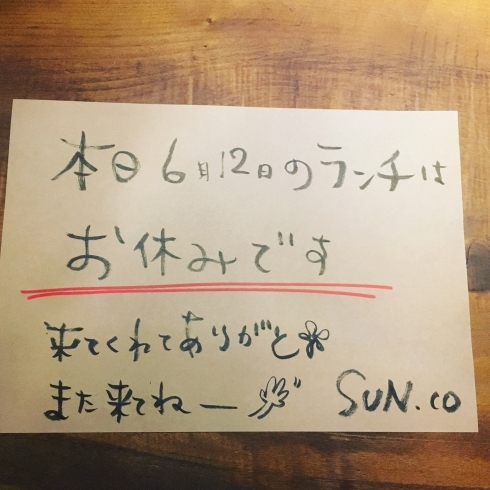 本日6月12日のランチは
お休みです
来てくれてありがと
また来てねー SUN.CO